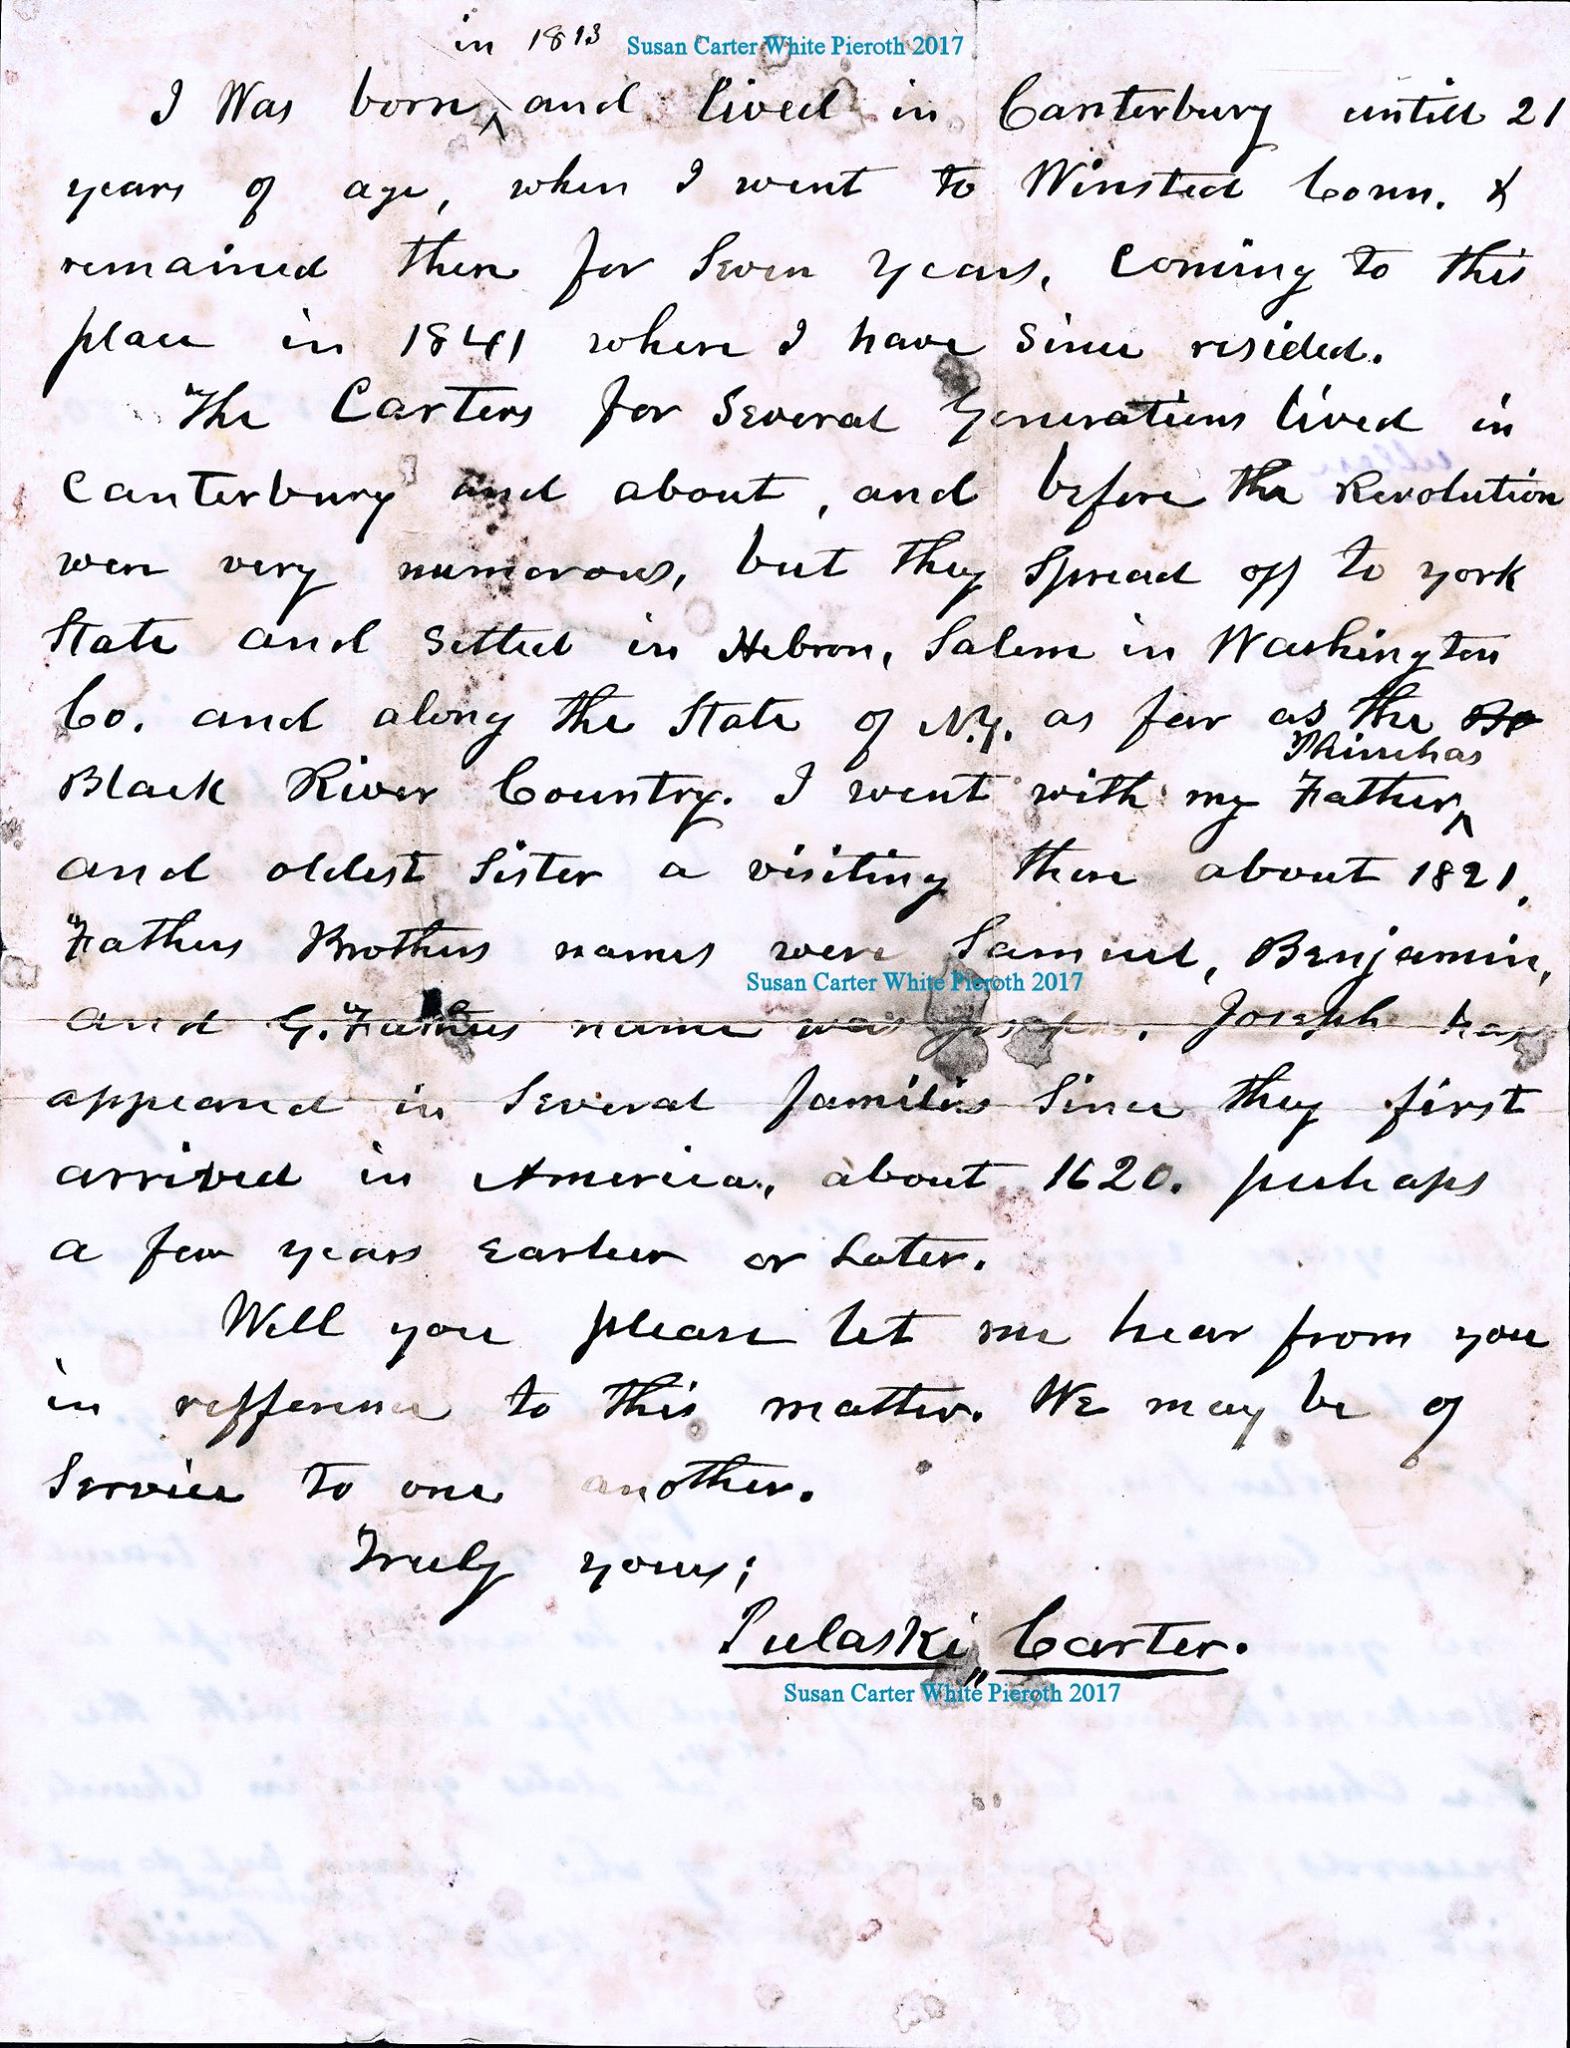 in 1813
Susan Carter White Pieroth 2017
I Was born ^ and lived in Canterbury untill 21
years of age, when I went to Winsted Conn. &
remained there for Seven years, coming to this
place in 1841 where I have since resided.
The Carters for Several Generations lived in
Canterbury and about, and before the Revolution
were very numerous, but they Spread off to york
State and settled in Hebron, Salem in Washington
Co. and along the State of N.Y. as far as the
Phinehas
Black River Country. I went with my Father ^
and oldest Sister a visiting there about 1821.
Fathers Brothers names were Samuel, Benjamin,
Susan Carter White Pieroth 2017
and G. Fathers name was Joseph. Joseph has
appeared in Several families Since they first
arrived in America, about 1620. perhaps
a few years earlier or Later.
Will you please let me hear from you
in refference to this matter. We may be of
Service to one another.
Truly yours;
Pulaski Carter.
Susan Carter White Pieroth 2017